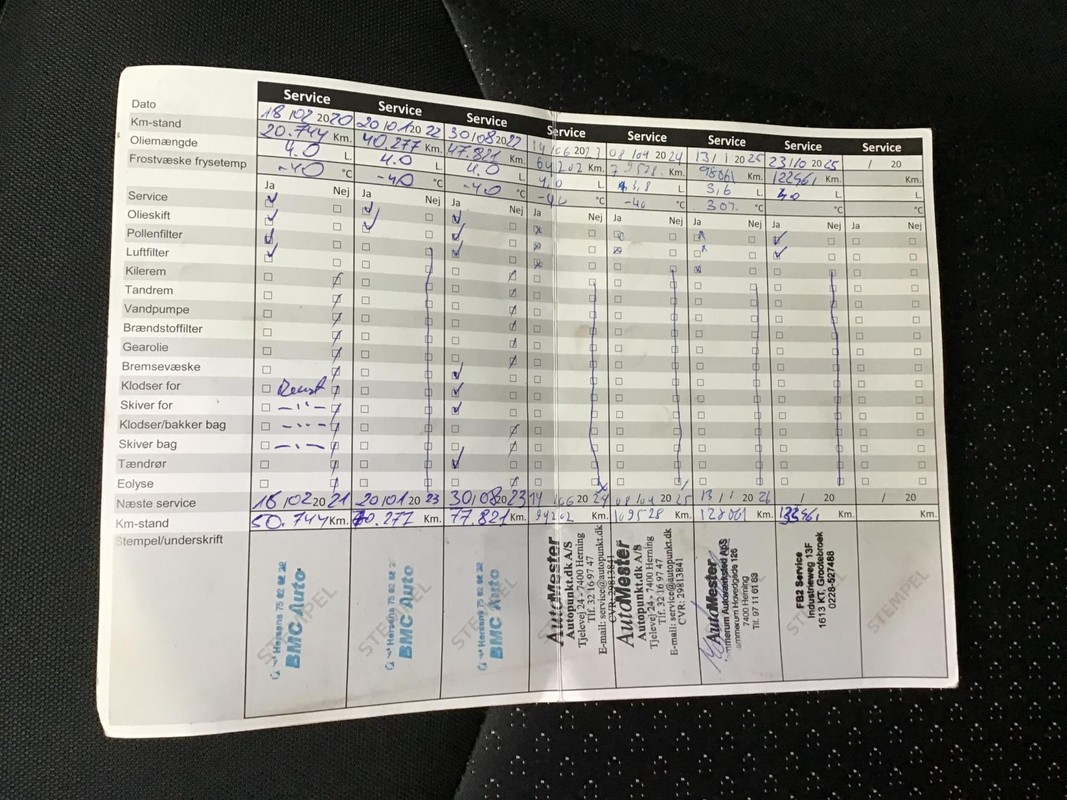 Service Service Service Service Service Service Service Service
Dato 18/02 2020 20/01 2022 30/08 2022 14/06 202 08/04 2024 13/1 2025 23/10 2025 / 20
Km-stand 20.744 Km. 40.277 Km. 47.821 Km. Km. Km. 98061 Km. Km. Km.
Oliemængde 4.0 L 4.0 L 4.0 L 4,0 L 3,8 L 3,6 L L L
Frostvæske frysetemp -40 °C -40 °C -40 °C -40 °C -40 °C °C °C °C
Ja Nej Ja Nej Ja Nej Ja Nej Ja Nej Ja Nej Ja Nej Ja Nej
Service
Olieskift
Pollenfilter
Luftfilter
Kilerem
Tandrem
Vandpumpe
Brændstoffilter
Gearolie
Bremsevæske
Klodser for
Skiver for
Klodser/bakker bag
Skiver bag
Tændrør
Eolyse
Næste service 18/02 2021 20/01 2023 30/08 2023 14/06 2024 08/04 2025 13/1 2026 / 20 / 20
Km-stand 50.744 Km. 70.277 Km. 77.821 Km. 94202 Km. 109528 Km. 128061 Km. Km. Km.
Stempel/underskrift
STEMPEL
BMC Auto
STEMPEL
BMC Auto
STEMPEL
BMC Auto
AutoMester
Autopunkt.dk A/S
Tjelevej 24 - 7400 Herning
Tlf. 32 16 97 47
E-mail: service@autopunkt.dk
CVR: 29813841
AutoMester
Autopunkt.dk A/S
Tjelevej 24 - 7400 Herning
Tlf. 32 16 97 47
E-mail: service@autopunkt.dk
CVR: 29813841
STEMPEL
AutoMester
7400 Herning
Tlf. 97 11 61 83
STEMPEL
FB2 Service
Industrieweg 13F
1613 KT, Grootebroek
0228-527488
STEMPEL